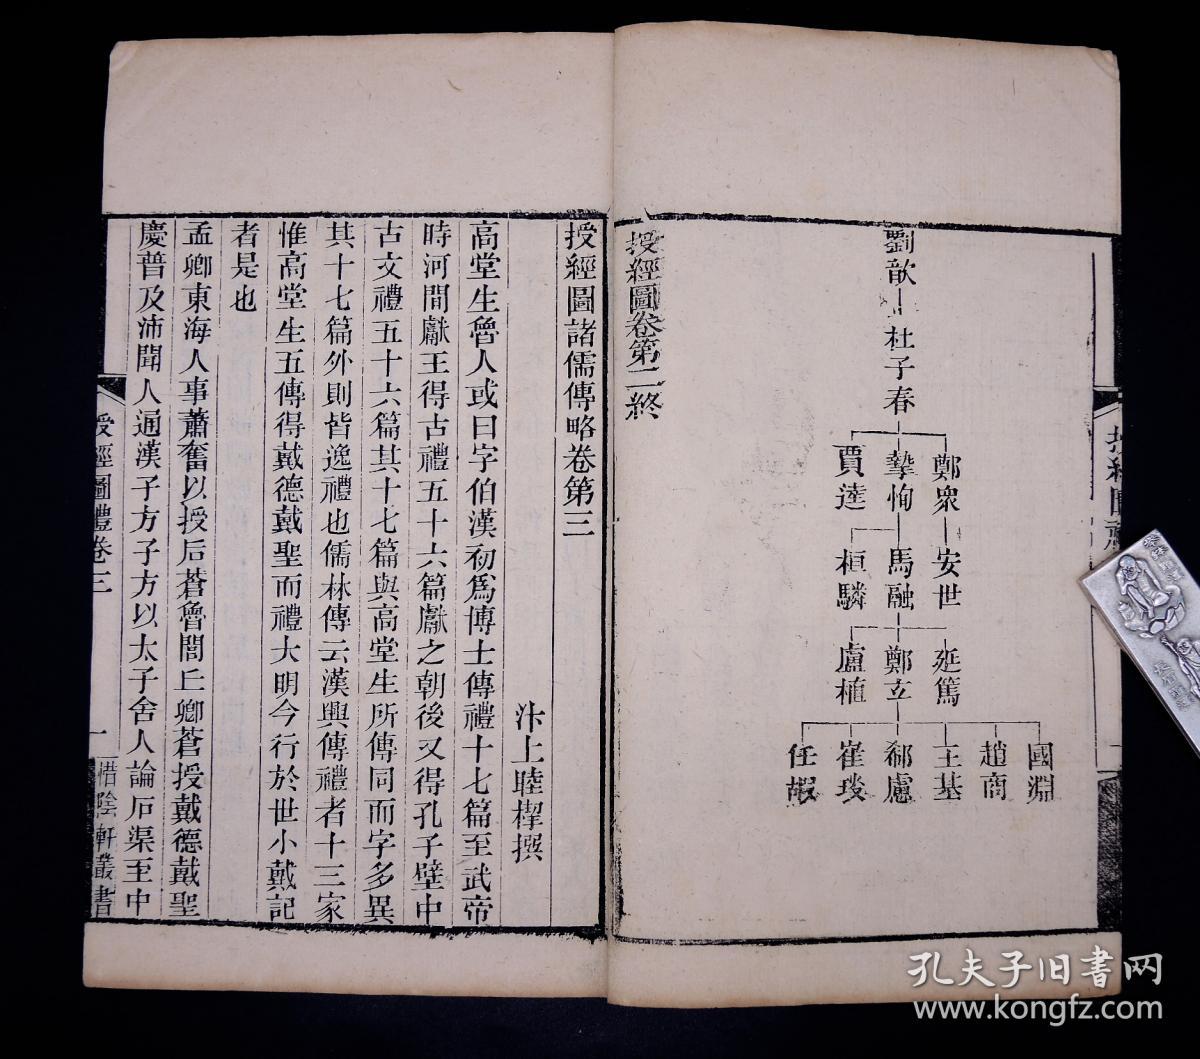 劉歆
杜子春
鄭衆
摯恂
賈逵
安世
馬融
桓驎
延篤
鄭立
盧植
國淵
趙商
王基
郗慮
崔琰
任嘏
授經圖卷第二終
授經圖諸儒傳略卷第三
汴上睦㮮撰
高堂生魯人或曰字伯漢初爲博士傳禮十七篇至武帝
時河間獻王得古禮五十六篇獻之朝後又得孔子壁中
古文禮五十六篇其十七篇與高堂生所傳同而字多異
其十七篇外則皆逸禮也儒林傳云漢興傳禮者十三家
惟高堂生五傳得戴德戴聖而禮大明今行於世小戴記
者是也
孟卿東海人事蕭奮以授后蒼魯閭丘卿蒼授戴德戴聖
慶普及沛聞人通漢子方子方以太子舍人論石渠至中
授經圖禮卷三
一
惜陰軒叢書
孔夫子旧书网
www.kongfz.com